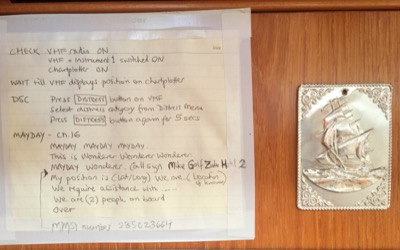 CHECK VHF radio ON
VHF + Instrument 1 switched ON
Chartplotter ON
WAIT till VHF displays position on chartplotter
DSC Press [DISTRESS] button on VHF
Select distress category from Distress menu
Press [DISTRESS] button again for 5 secs
MAYDAY - Ch. 16
MAYDAY MAYDAY MAYDAY
This is Wonderer Wonderer Wonderer
MAYDAY Wonderer. Call sign Mike Golf Zulu 2
My position is (lat/long) We are (location if known)
We require assistance with .....
We are (2) people on board
Over
MMSI number